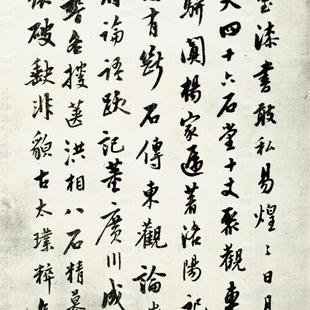 漆書敢私易煌〻日月
大四十六石堂十丈聚觀車
駢闐楊家遞著洛陽記
有斷石傳東觀論
論語跋記董廣川
聱各搜逑洪相八石精摹
破缺非貌古太璞粹